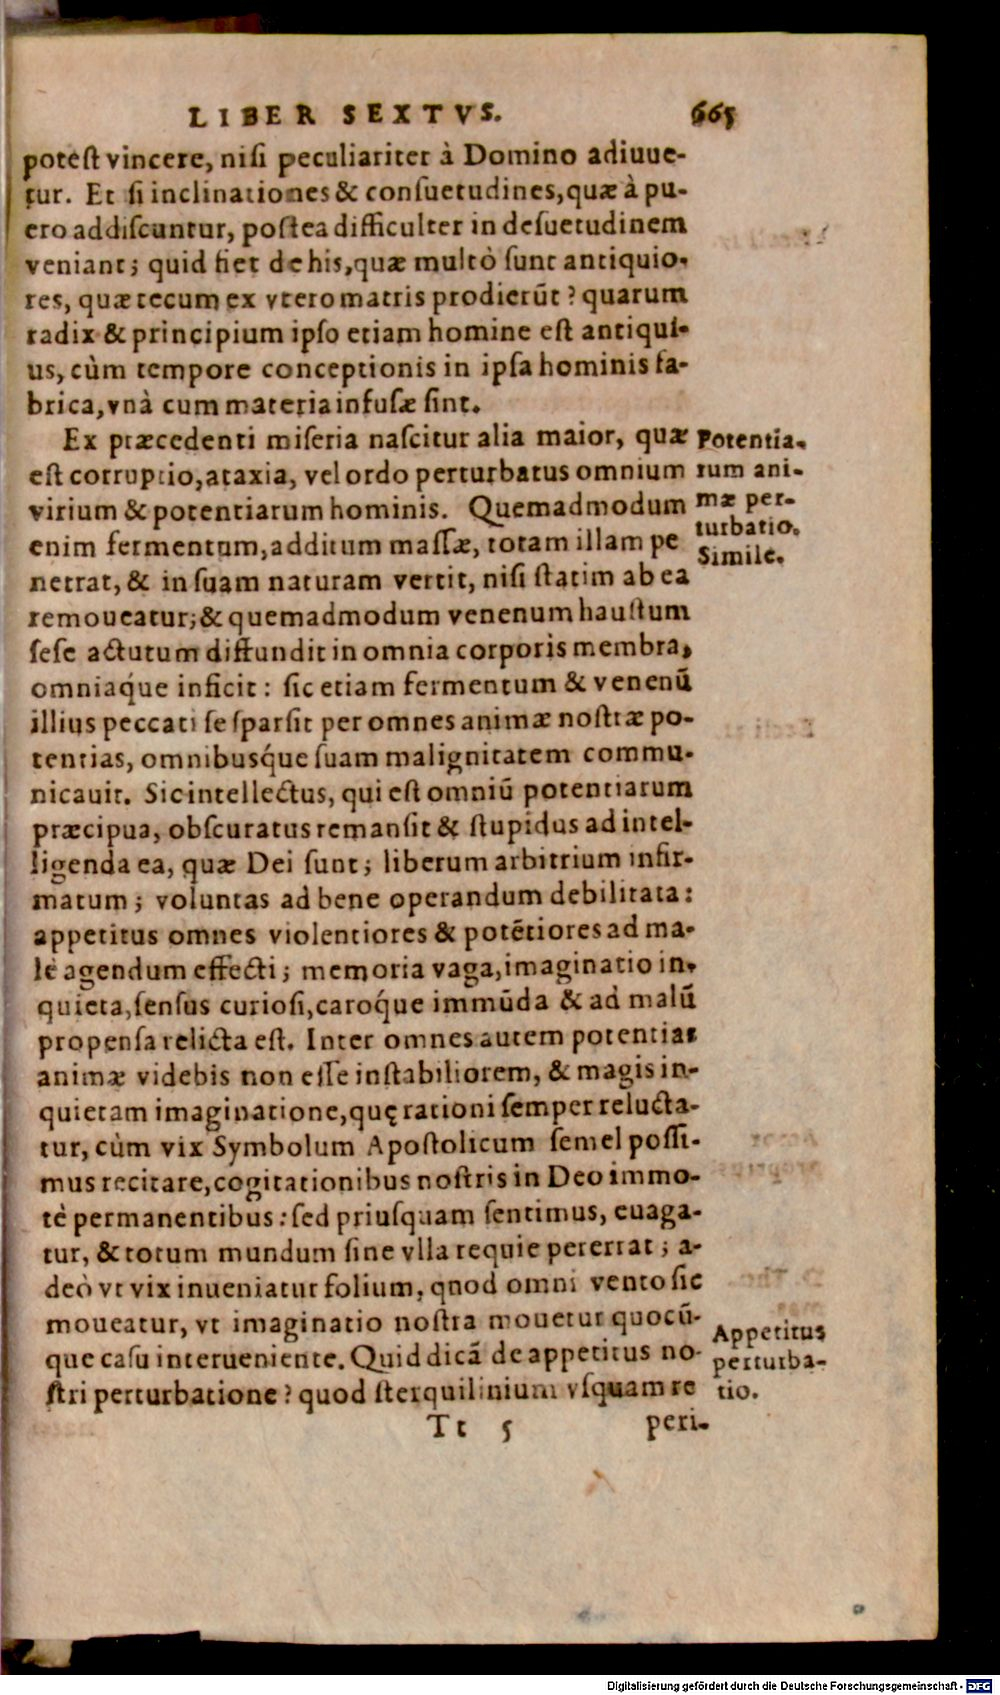 LIBER SEXTVS. 665
poteſt vincere, niſi peculiariter à Domino adiuue-
tur. Et ſi inclinationes & conſuetudines, quæ à pu-
ero addiſcuntur, poſtea difficulter in deſuetudinem
veniant; quid fiet de his, quæ multò ſunt antiquio-
res, quæ tecum ex vtero matris prodierūt? quarum
radix & principium ipſo etiam homine eſt antiqui-
us, cùm tempore conceptionis in ipſa hominis fa-
brica, vnà cum materia infuſæ ſint.
Ex præcedenti miſeria naſcitur alia maior, quæ
eſt corruptio, ataxia, vel ordo perturbatus omnium
virium & potentiarum hominis. Quemadmodum
enim fermentum, additum maſſæ, totam illam pe
netrat, & in ſuam naturam vertit, niſi ſtatim ab ea
remoueatur; & quemadmodum venenum hauſtum
ſeſe actutum diffundit in omnia corporis membra,
omniaq́ue inficit: ſic etiam fermentum & venenū
illius peccati ſe ſparſit per omnes animæ noſtræ po-
tentias, omnibusq́ue ſuam malignitatem commu-
nicauit. Sic intellectus, qui eſt omniū potentiarum
præcipua, obſcuratus remanſit & ſtupidus ad intel-
ligenda ea, quæ Dei ſunt; liberum arbitrium infir-
matum; voluntas ad bene operandum debilitata:
appetitus omnes violentiores & potētiores ad ma-
lè agendum effecti; memoria vaga, imaginatio in-
quieta, ſenſus curioſi, caroq́ue immūda & ad malū
propenſa relicta eſt. Inter omnes autem potentias
animæ videbis non eſſe inſtabiliorem, & magis in-
quietam imaginatione, quę rationi ſemper relucta-
tur, cùm vix Symbolum Apoſtolicum ſemel poſſi-
mus recitare, cogitationibus noſtris in Deo immo-
tè permanentibus: ſed priuſquam ſentimus, euaga-
tur, & totum mundum ſine vlla requie pererrat; a-
deò vt vix inueniatur folium, quod omni vento ſic
moueatur, vt imaginatio noſtra mouetur quocū-
que caſu interueniente. Quid dicā de appetitus no-
ſtri perturbatione? quod ſterquilinium vſquam re
Tt 5 peri-
Potentia-
rum ani-
mæ per-
turbatio.
Simile.
Appetitus
perturba-
tio.
Digitalisierung gefördert durch die Deutsche Forschungsgemeinschaft - DFG